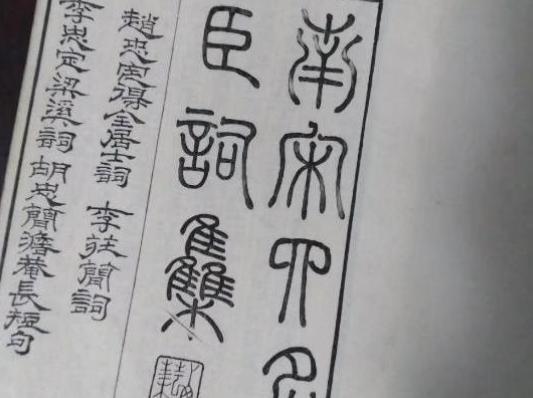 南宋四名
臣詞集
趙忠定得全居士詞 李莊簡詞
李忠定梁溪詞 胡忠簡澹菴長短句